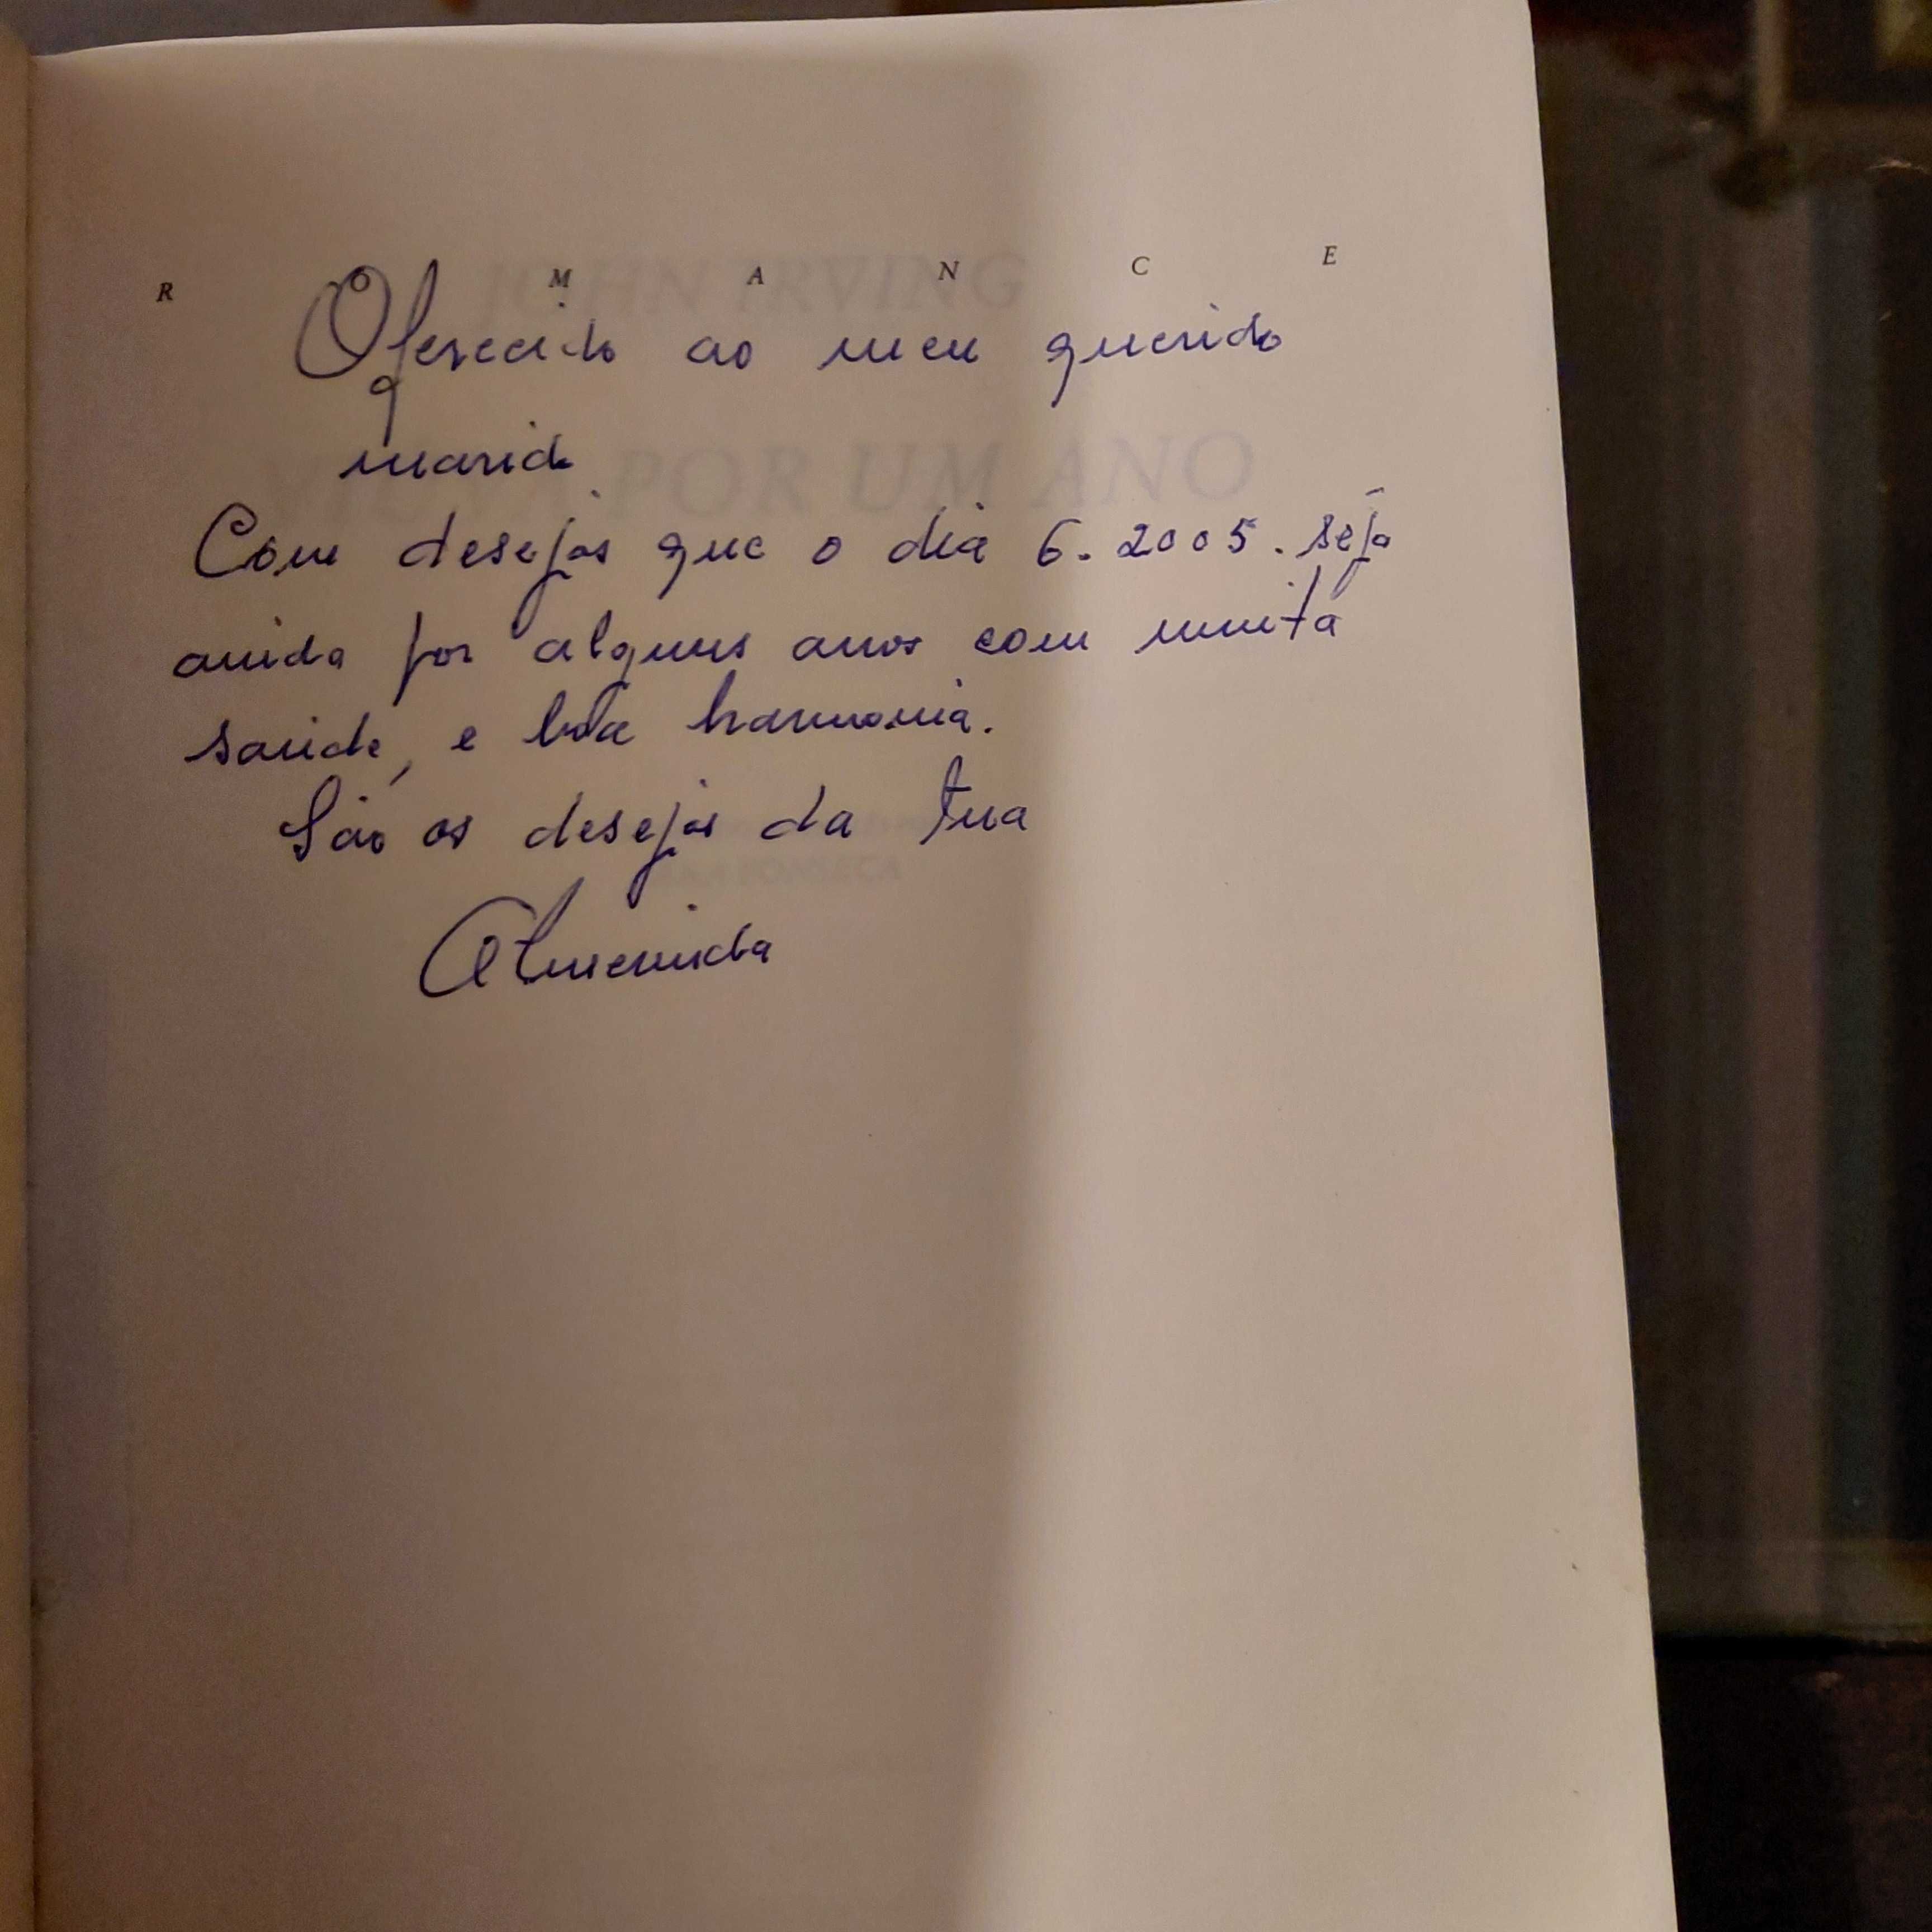 R O M A N C E
Oferecido ao meu querido
marido
Com desejos que o dia 6.2005. seja
ainda por alguns anos com muita
saúde, e boa harmonia.
São os desejos da tua
Almerinda
JOHN IRVING
VIÚVA POR UM ANO
FONSECA